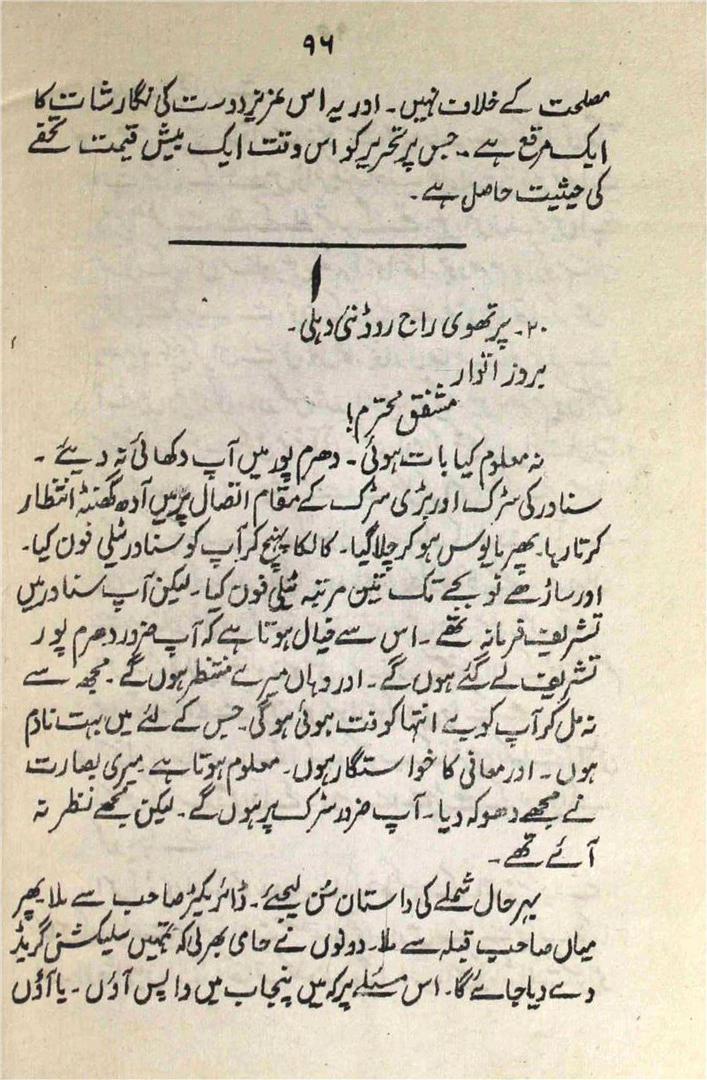 ۹۶
مصلحت کے خلاف نہیں۔ اور یہ اس عزیز دوست کی نگارشات کا
ایک مرقع ہے۔ جس پر تحریر کو اس وقت ایک بیش قیمت تحفے
کی حیثیت حاصل ہے۔
۱
۲۰۔ پرتھوی راج روڈ نئی دہلی۔
بروز اتوار۔
مشفق محترم!
نہ معلوم کیا بات ہوئی۔ دھرم پور میں آپ دکھائی نہ دیئے۔
سناور کی سڑک اور بڑی سڑک کے مقام اتصال پر میں آدھ گھنٹہ انتظار
کرتا رہا۔ پھر مایوس ہو کر چلا گیا۔ کالکا پہنچ کر آپ کو سناور ٹیلی فون کیا۔
اور ساڑھے نو بجے تک تین مرتبہ ٹیلی فون کیا۔ لیکن آپ سناور میں
تشریف فرما نہ تھے۔ اس سے خیال ہوتا ہے کہ آپ ضرور دھرم پور
تشریف لے گئے ہوں گے۔ اور وہاں میرے منتظر ہوں گے۔ مجھ سے
نہ مل کر آپ کو بے انتہا کوفت ہوئی ہوگی۔ جس کے لئے میں بہت نادم
ہوں۔ اور معافی کا خواستگار ہوں۔ معلوم ہوتا ہے میری بصارت
نے مجھے دھوکہ دیا۔ آپ ضرور سڑک پر ہوں گے۔ لیکن مجھے نظر نہ
آئے تھے۔
بہر حال شملے کی داستان سن لیجئے۔ ڈائریکٹر صاحب سے ملا پھر
میاں صاحب قبلہ سے ملا۔ دونوں نے حامی بھر لی کہ تمہیں سلیکشن گریڈ
دے دیا جائے گا۔ اس مسئلے پر کہ میں پنجاب میں واپس آؤں۔ یا آؤں